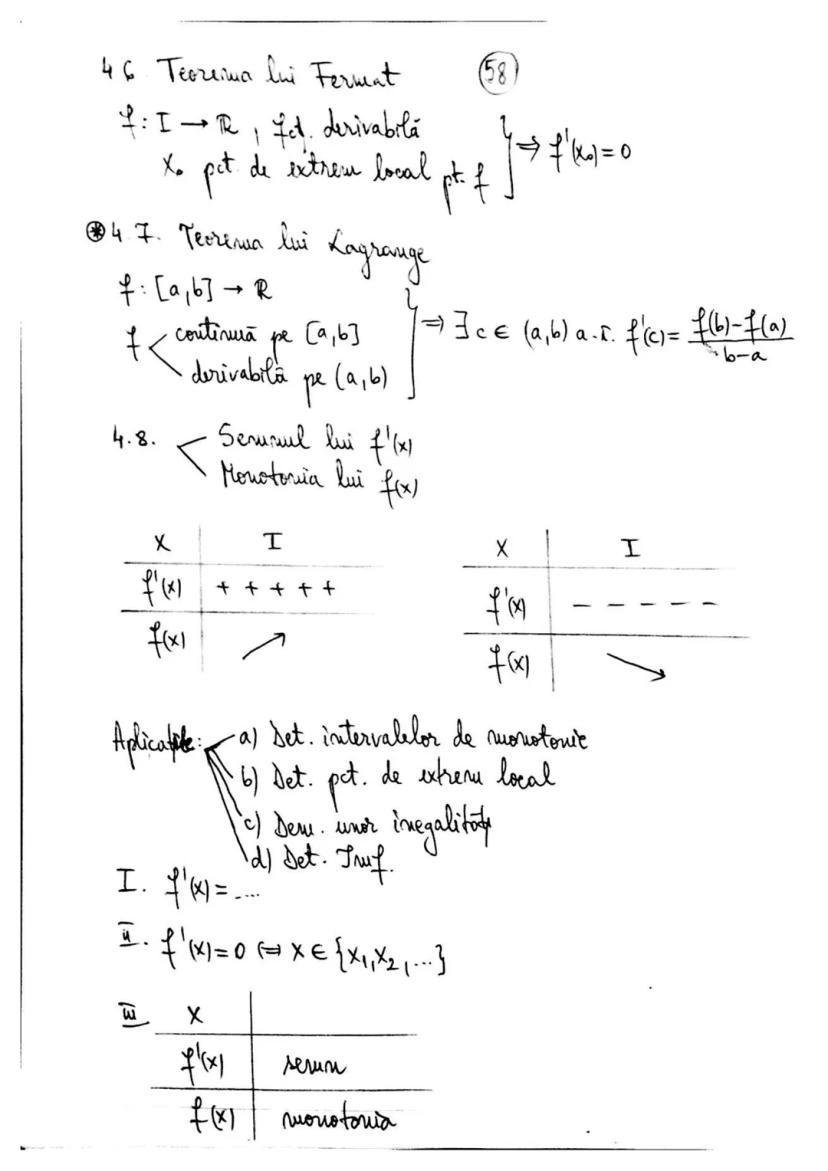 4 6 Teorema lui Fermat 58
f: I → ℝ, fct. derivabilă
x₀ pct. de extrem local pt. f } ⇒ f'(x₀)=0
⊛ 4 7. Teorema lui Lagrange
f: [a,b] → ℝ
f continuă pe [a,b]
derivabilă pe (a,b) } ⇒ ∃ c ∈ (a,b) a.î. f'(c) = (f(b)-f(a))/(b-a)
4.8. Semnul lui f'(x)
Monotonia lui f(x)
x | I
f'(x) | + + + + +
f(x) | ↗
x | I
f'(x) | – – – – –
f(x) | ↘
Aplicații: a) Det. intervalelor de monotonie
b) Det. pct. de extrem local
c) Dem. unor inegalități
d) Det. Imf.
I. f'(x) = ....
II. f'(x)=0 ⇔ x ∈ {x₁, x₂, ...}
III x |
f'(x) | semn
f(x) | monotonia